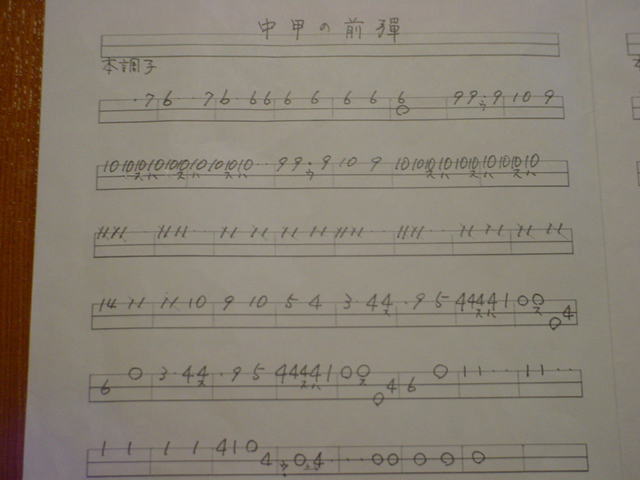 中甲の前弾
本調子
・7 6 7 6・6 6 6 6 6 6 6 0 9 9・9 10 9
ウ
10 10 10 10 10 10 10 10 10 10・・9 9・9 10 9 10 10 10 10 10 10 10 10 10 10
スハ スハ スハ ウ スハ スハ スハ
11 11・・11 11・・11 11 11 11 11 11・・11 11・・11 11 11 11
14 11 11 10 9 10 5 4 3・4 4・9 5 4 4 4 4 1 0 0 0 4
ス スハ ス
6 0 3・4 4・9 5 4 4 4 4 1 0 0 0 4 6 0 1 1・・1 1・・
ス スハ ス
1 1 1 1 4 1 0 4・0 4・・・0 0 0 0 0
ウ